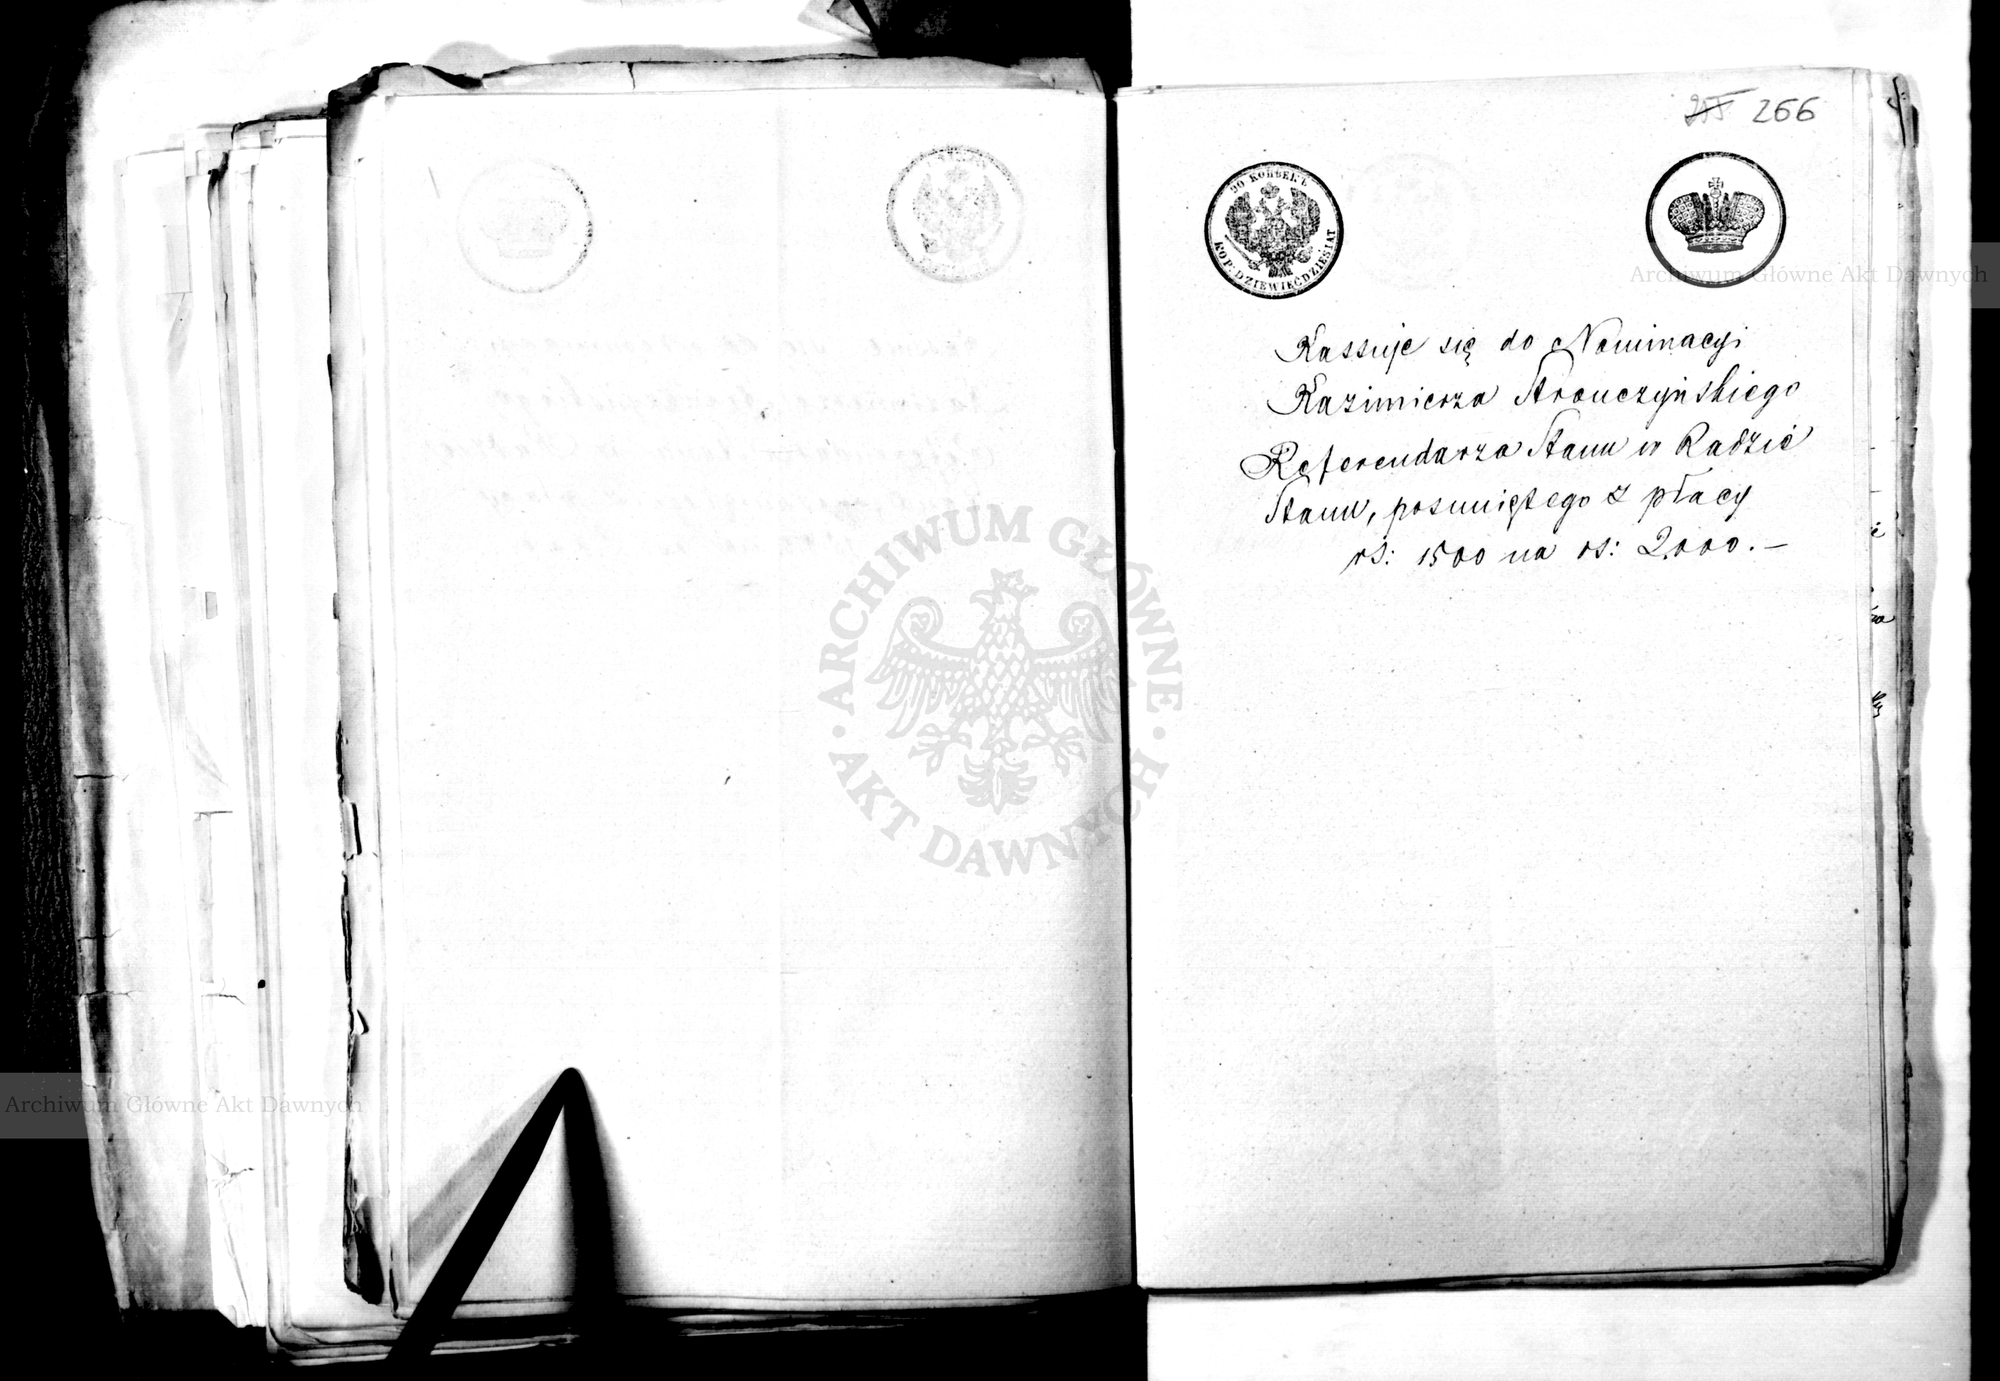 266
90 КОПѢЕКЪ
KOP. DZIEWIĘĆDZIESIĄT
Archiwum Główne Akt Dawnych
Kassuje się do Nominacyi
Kazimierza Stronczyńskiego
Referendarza Stanu w Radzie
Stanu, posuniętego z płacy
rs: 1500 na rs: 2000.—
ARCHIWUM GŁÓWNE
AKT DAWNYCH
Archiwum Główne Akt Dawnych